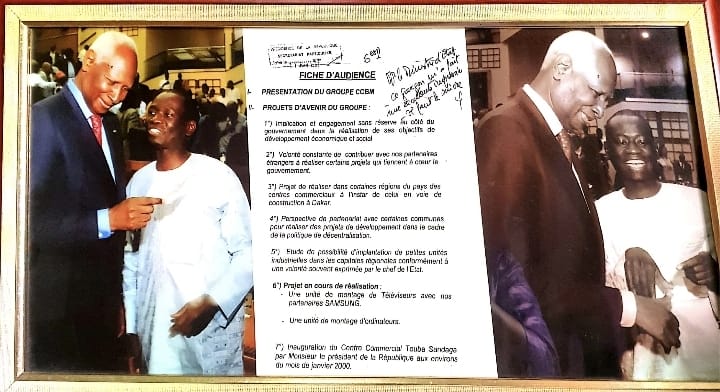 PRESIDENCE DE LA REPUBLIQUE
SECRETARIAT PARTICULIER
FICHE D'AUDIENCE
I. PRESENTATION DU GROUPE CCBM
II. PROJETS D'AVENIR DU GROUPE :
1°) Implication et engagement sans
réserve au côté du
gouvernement dans la réalisation de ses objectifs de
développement économique et social
2°) Volonté constante de contribuer avec nos partenaires
étrangers à réaliser certains projets qui tiennent à cœur le
gouvernement.
3°) Projet de réaliser dans certaines régions du pays des
centres commerciaux à l'instar de celui en voie de
construction à Dakar.
4°) Perspective de partenariat avec certaines communes
pour réaliser des projets de développement dans le cadre
de la politique de décentralisation.
5°) Etude de possibilité d'implantation de petites unités
industrielles dans les capitales régionales conformément à
une volonté souvent exprimée par le chef de l'Etat.
6°) Projet en cours de réalisation :
- Une unité de montage de Téléviseurs avec nos
partenaires SAMSUNG.
- Une unité de montage d'ordinateurs.
7°) Inauguration du Centre Commercial Touba Sandaga
par Monsieur le président de la République aux environs
du mois de janvier 2000.